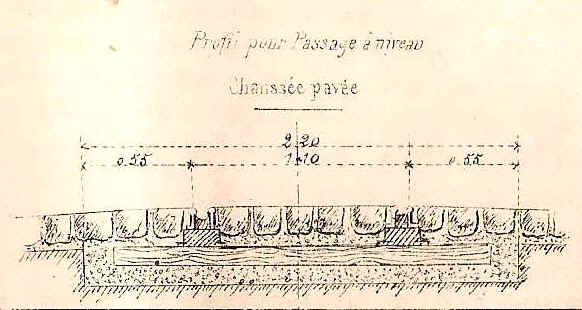 Profil pour Passage à niveau
Chaussée pavée
2.20
0.55 1.10 0.55